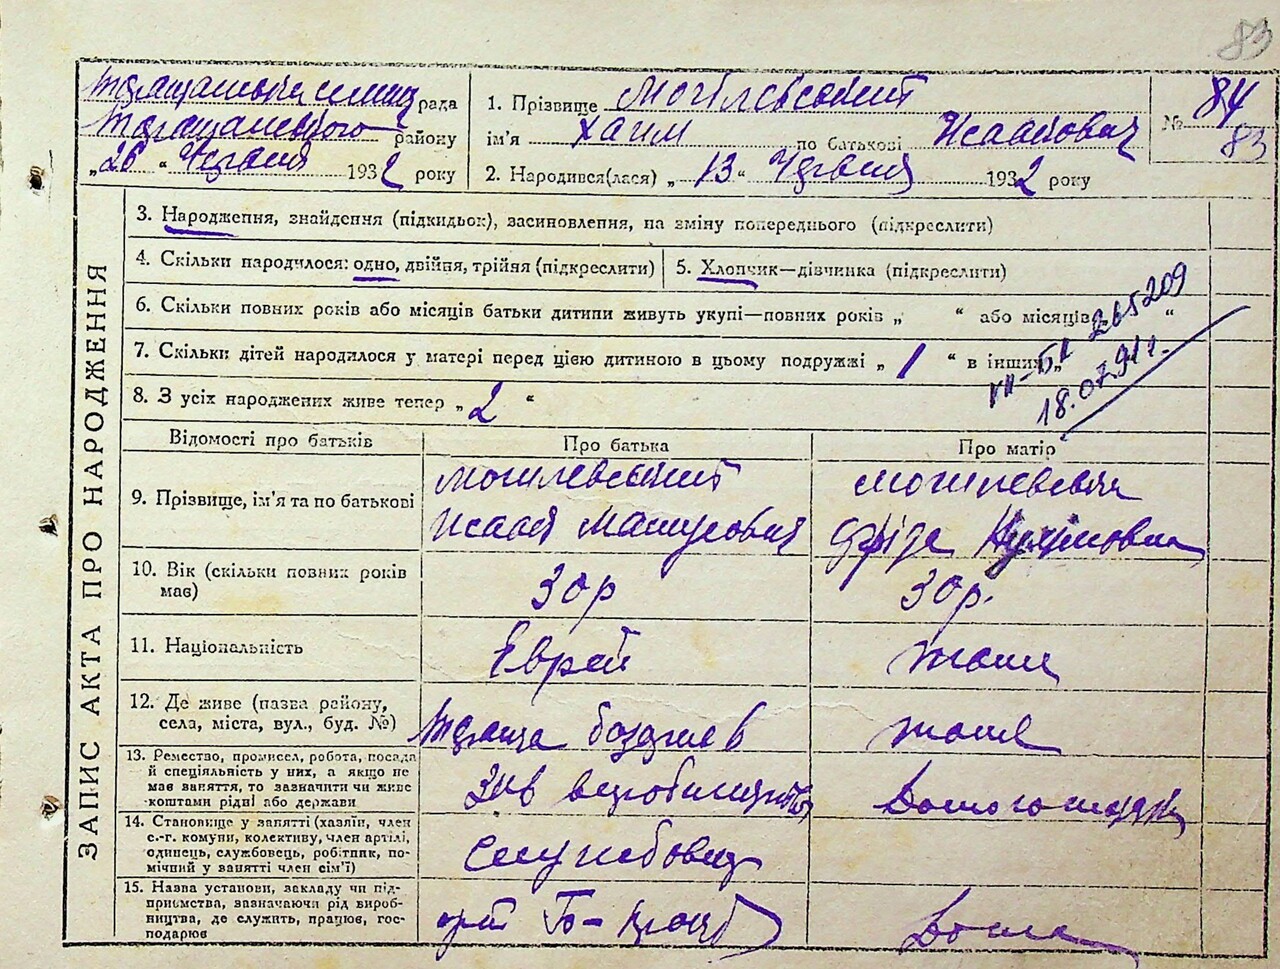 83
рада
району
„26“ Червня 1932 року
1. Прізвище Могілевський
ім'я Хаїм по батькові Исаакович
2. Народився(лася) „13“ Червня 1932 року
№ 84
83
ЗАПИС АКТА ПРО НАРОДЖЕННЯ
3. Народження, знайдення (підкидьок), засиновлення, на зміну попереднього (підкреслити)
4. Скільки народилося: одно, двійня, трійня (підкреслити)
5. Хлопчик—дівчинка (підкреслити)
6. Скільки повних років або місяців батьки дитини живуть укупі—повних років „ “ або місяців „ “
7. Скільки дітей народилося у матері перед цією дитиною в цьому подружжі „1“ в інших „
8. З усіх народжених живе тепер „2“
265209
18.07.91 г.
Відомості про батьків
Про батька
Про матір
9. Прізвище, ім'я та по батькові
Могилевський
Исаак
Могилевська
Фріда
10. Вік (скільки повних років
має)
30 р
30 р.
11. Національність
Єврей
тоже
12. Де живе (назва району,
села, міста, вул., буд. №)
Тараща
тоже
13. Ремество, промисел, робота, посада
й спеціяльність у них, а якщо не
має заняття, то зазначити чи живе
коштами рідні або держави
Зав
14. Становище у занятті (хазяїн, член
с.-г. комуни, колективу, член артілі,
одинець, службовець, робітник, по-
мічний у занятті член сім'ї)
Службовец
15. Назва установи, закладу чи під-
приємства, зазначаючи рід вироб-
ництва, де служить, працює, гос-
подарює